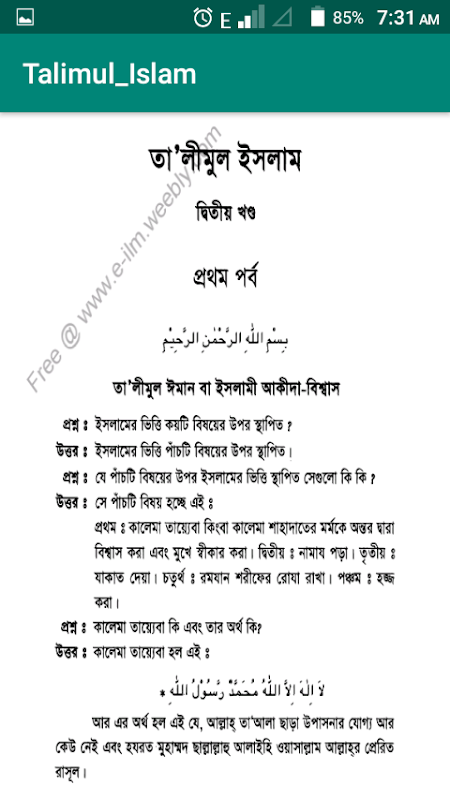 E 85% 7:31 AM
Talimul_Islam
Free @ www.e-ilm.weebly.com
তা’লীমুল ইসলাম
দ্বিতীয় খণ্ড
প্রথম পর্ব
بِسْمِ اللّٰهِ الرَّحْمٰنِ الرَّحِيْمِ
তা’লীমুল ঈমান বা ইসলামী আকীদা-বিশ্বাস
প্রশ্ন ঃ ইসলামের ভিত্তি কয়টি বিষয়ের উপর স্থাপিত ?
উত্তর ঃ ইসলামের ভিত্তি পাঁচটি বিষয়ের উপর স্থাপিত।
প্রশ্ন ঃ যে পাঁচটি বিষয়ের উপর ইসলামের ভিত্তি স্থাপিত সেগুলো কি কি ?
উত্তর ঃ সে পাঁচটি বিষয় হচ্ছে এই ঃ
প্রথম ঃ কালেমা তায়্যেবা কিংবা কালেমা শাহাদাতের মর্মকে অন্তর দ্বারা
বিশ্বাস করা এবং মুখে স্বীকার করা। দ্বিতীয় ঃ নামায পড়া। তৃতীয় ঃ
যাকাত দেয়া। চতুর্থ ঃ রমযান শরীফের রোযা রাখা। পঞ্চম ঃ হজ্জ
করা।
প্রশ্ন ঃ কালেমা তায়্যেবা কি এবং তার অর্থ কি?
উত্তর ঃ কালেমা তায়্যেবা হল এই ঃ
لَا اِلٰهَ اِلَّا اللّٰهُ مُحَمَّدٌ رَّسُوْلُ اللّٰهِ *
আর এর অর্থ হল এই যে, আল্লাহ্ তা'আলা ছাড়া উপাসনার যোগ্য আর
কেউ নেই এবং হযরত মুহাম্মদ ছাল্লাল্লাহু আলাইহি ওয়াসাল্লাম আল্লাহ্‌র প্রেরিত
রাসূল।